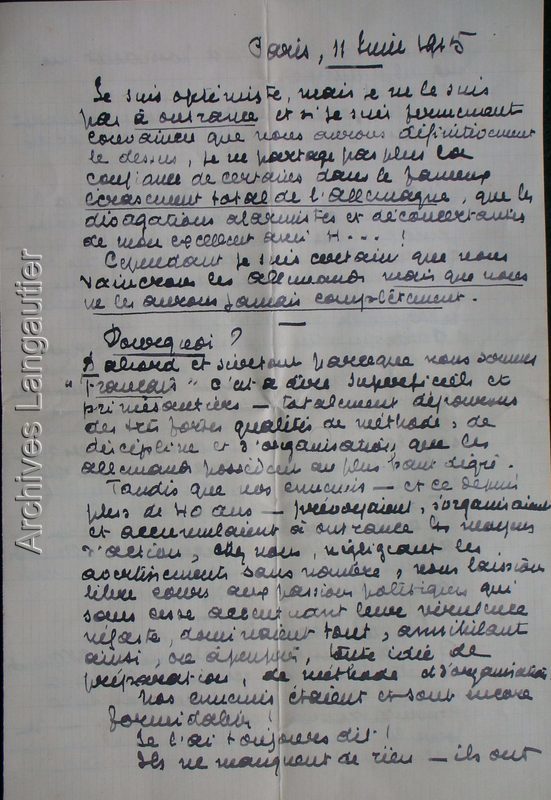 Paris, 11 Juin 1915
Je suis optimiste, mais je ne le suis
pas à outrance et si je suis fermement
convaincu que nous aurons définitivement
le dessus, je ne partage pas plus la
confiance de certains dans le fameux
écrasement total de l'Allemagne, que les
divagations alarmistes et déconcertantes
de mon excellent ami H... !
Cependant je suis certain que nous
vaincrons les allemands mais que nous
ne les aurons jamais complètement.
Pourquoi ?
D'abord et surtout parceque nous sommes
"Français" c'est à dire superficiels et
primesautiers — totalement dépourvus
des très fortes qualités de méthode, de
discipline et d'organisation que les
allemands possèdent au plus haut degré.
Tandis que nos ennemis — et ce depuis
plus de 40 ans — prévoyaient, s'organisaient
et accumulaient à outrance les moyens
d'action, chez nous, négligeant les
avertissements sans nombre, nous laissions
libre cours aux passions politiques qui
sans cesse accentuant leur virulence
néfaste, dominaient tout, annihilant
ainsi, ou à peu près, toute idée de
préparation, de méthode et d'organisation
Nos ennemis étaient et sont encore
formidables !
Je l'ai toujours dit !
Ils ne manquent de rien — ils ont
Archives Langautier